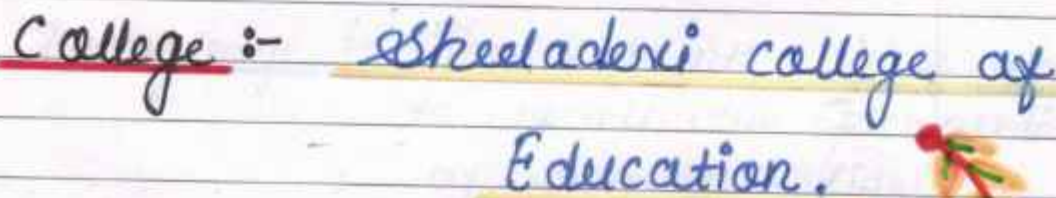 College :- Sheeladevi college of
Education.